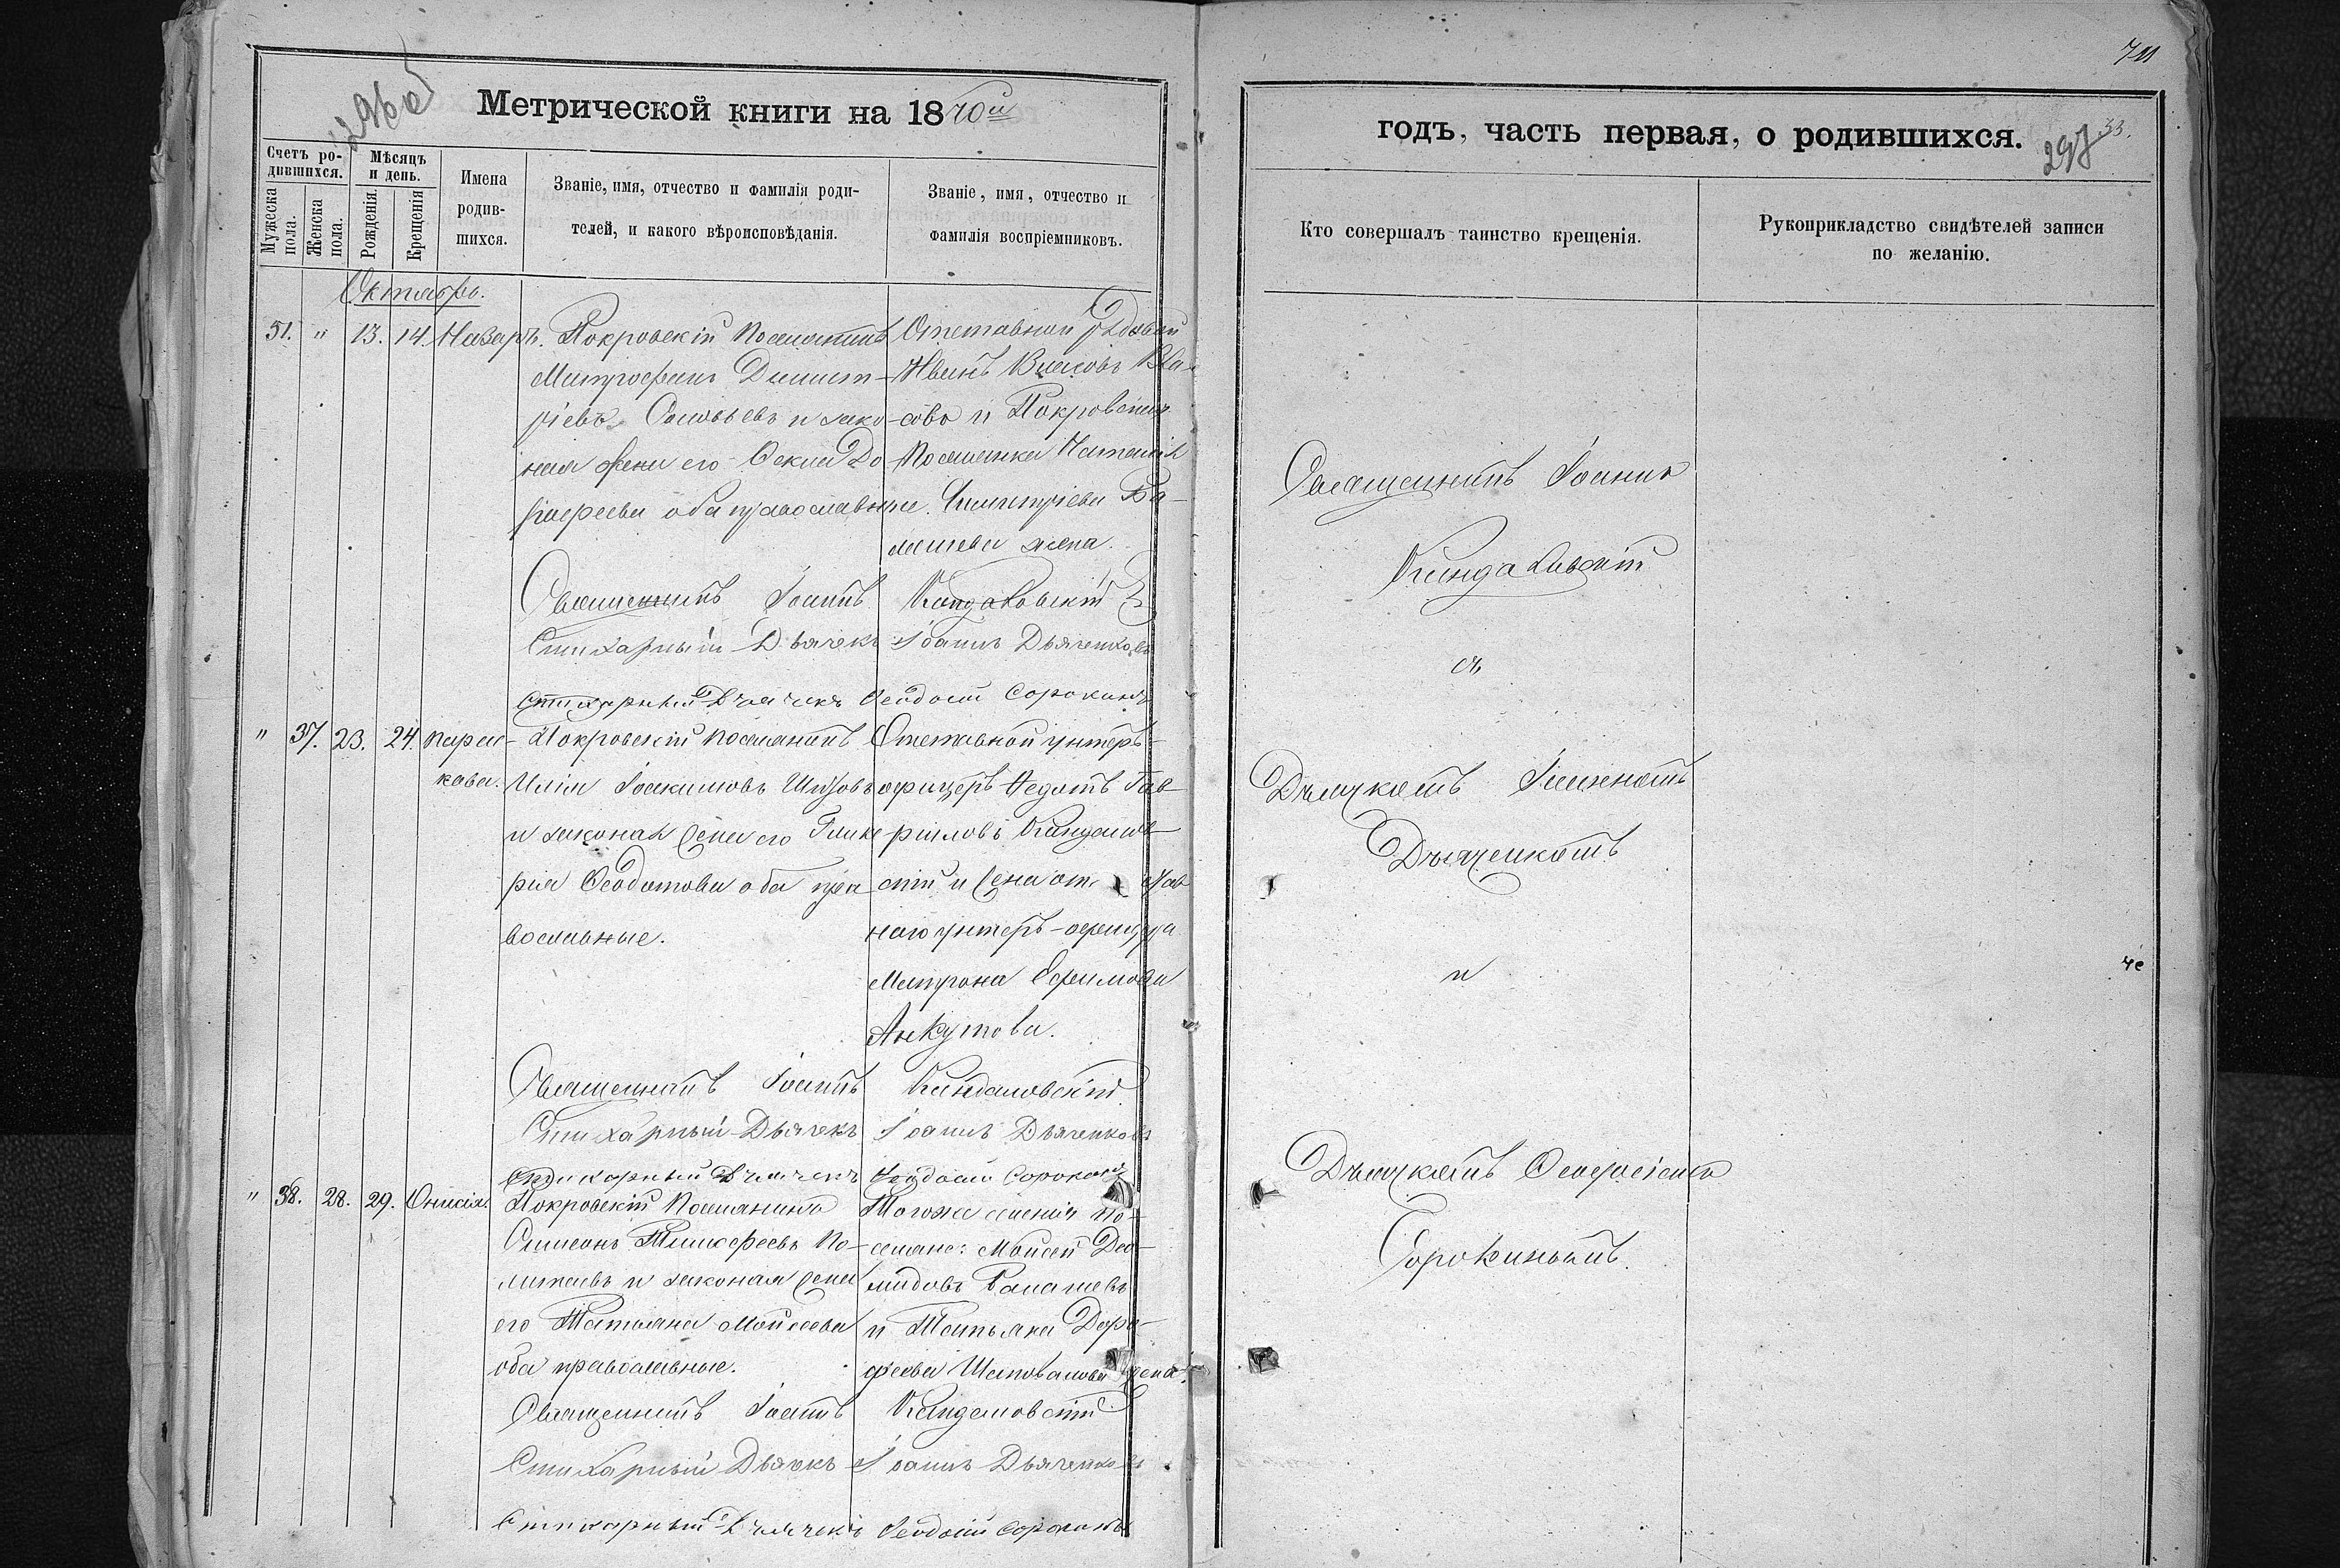 296 об
Метрической книги на 1870й
Счетъ ро-
дившихся.
Мужеска
пола.
Женска
пола.
Мѣсяцъ
и день.
Рожденія.
Крещенія
Имена
родив-
шихся.
Званіе, имя, отчество и фамилія роди-
телей, и какого вѣроисповѣданія.
Званіе, имя, отчество и
фамилія воспріемниковъ.
Октябрь.
51. " 13. 14. Назаръ.
Покровскій Поселянинъ
Митрофанъ Димит-
ріевъ Соловьевъ и зако-
ная жена его Фекла До-
рофеева оба православные.
Отставной рядовой
Иванъ Власовъ Вла-
совъ и Покровская
Поселянка Наталія
Димитріева Ба-
лашева жена.
Священникъ Іоаннъ Кандаловскій
Стихарный Дьячекъ Іоаннъ Дьяченковъ
Стихарный Дьячекъ Феодосій Сорокинъ
" 37. 23. 24. Парас-
кева.
Покровскій поселянинъ
Илія Іоакимовъ
и законая жена его Глике-
рія Феодотова оба пра-
вославные.
Отставной унтеръ-
офицеръ Федотъ Гав-
риловъ
и жена отстав-
наго унтеръ-офицера
Матрона Ефимова
Анкутова.
Священникъ Іоаннъ Кандаловскій
Стихарный Дьячекъ Іоаннъ Дьяченковъ
Стихарный Дьячекъ Феодосій Сорокинъ
" 38. 28. 29. Онисія.
Покровскій Поселянинъ
Симеонъ Тимофеевъ По-
литаевъ и законая жена
его Татьяна Моисеева
оба православные.
Тогоже селенія по-
селяне: Моисей Део-
мидовъ Балашевъ
и Татьяна Доро-
феева Шаповалова жена.
Священникъ Іоаннъ Кандаловскій
Стихарный Дьячекъ Іоаннъ Дьяченковъ
Стихарный Дьячекъ Феодосій Сорокинъ
711
годъ, часть первая, о родившихся.
33.
297
Кто совершалъ таинство крещенія.
Рукоприкладство свидѣтелей записи
по желанію.
Священникъ Іоаннъ
Кандаловскій
съ
Дьячкомъ Іоанномъ
Дьяченкомъ
и
Дьячкомъ Феодосіемъ
Сорокинымъ.